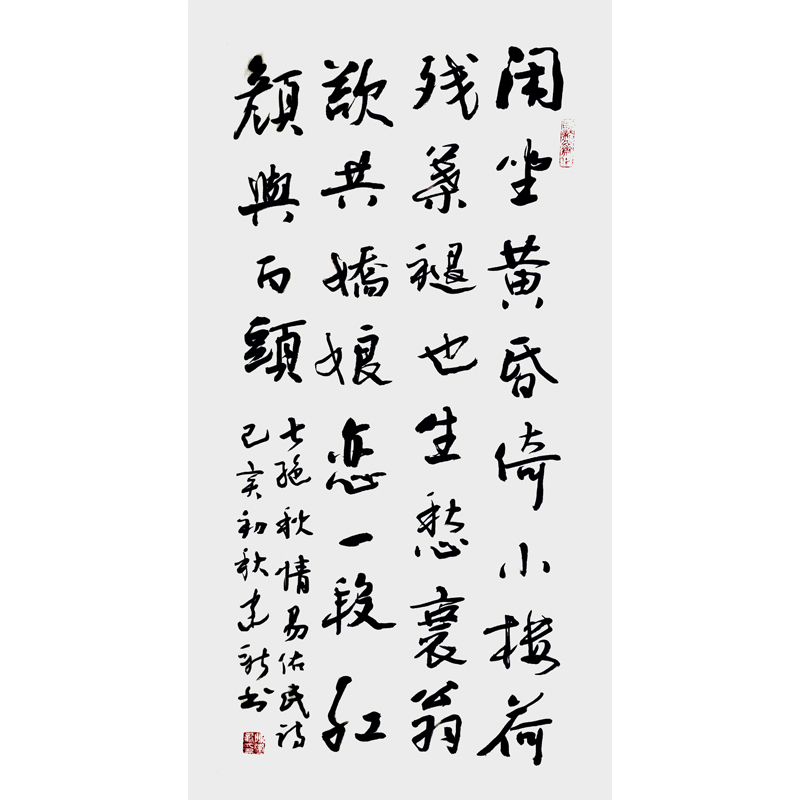 闲坐黄昏倚小楼荷
残葉褪也生愁衰翁
欲共嬌娘恋一段红
顔與白頭
七绝秋情易佑民诗
己亥初秋建新书